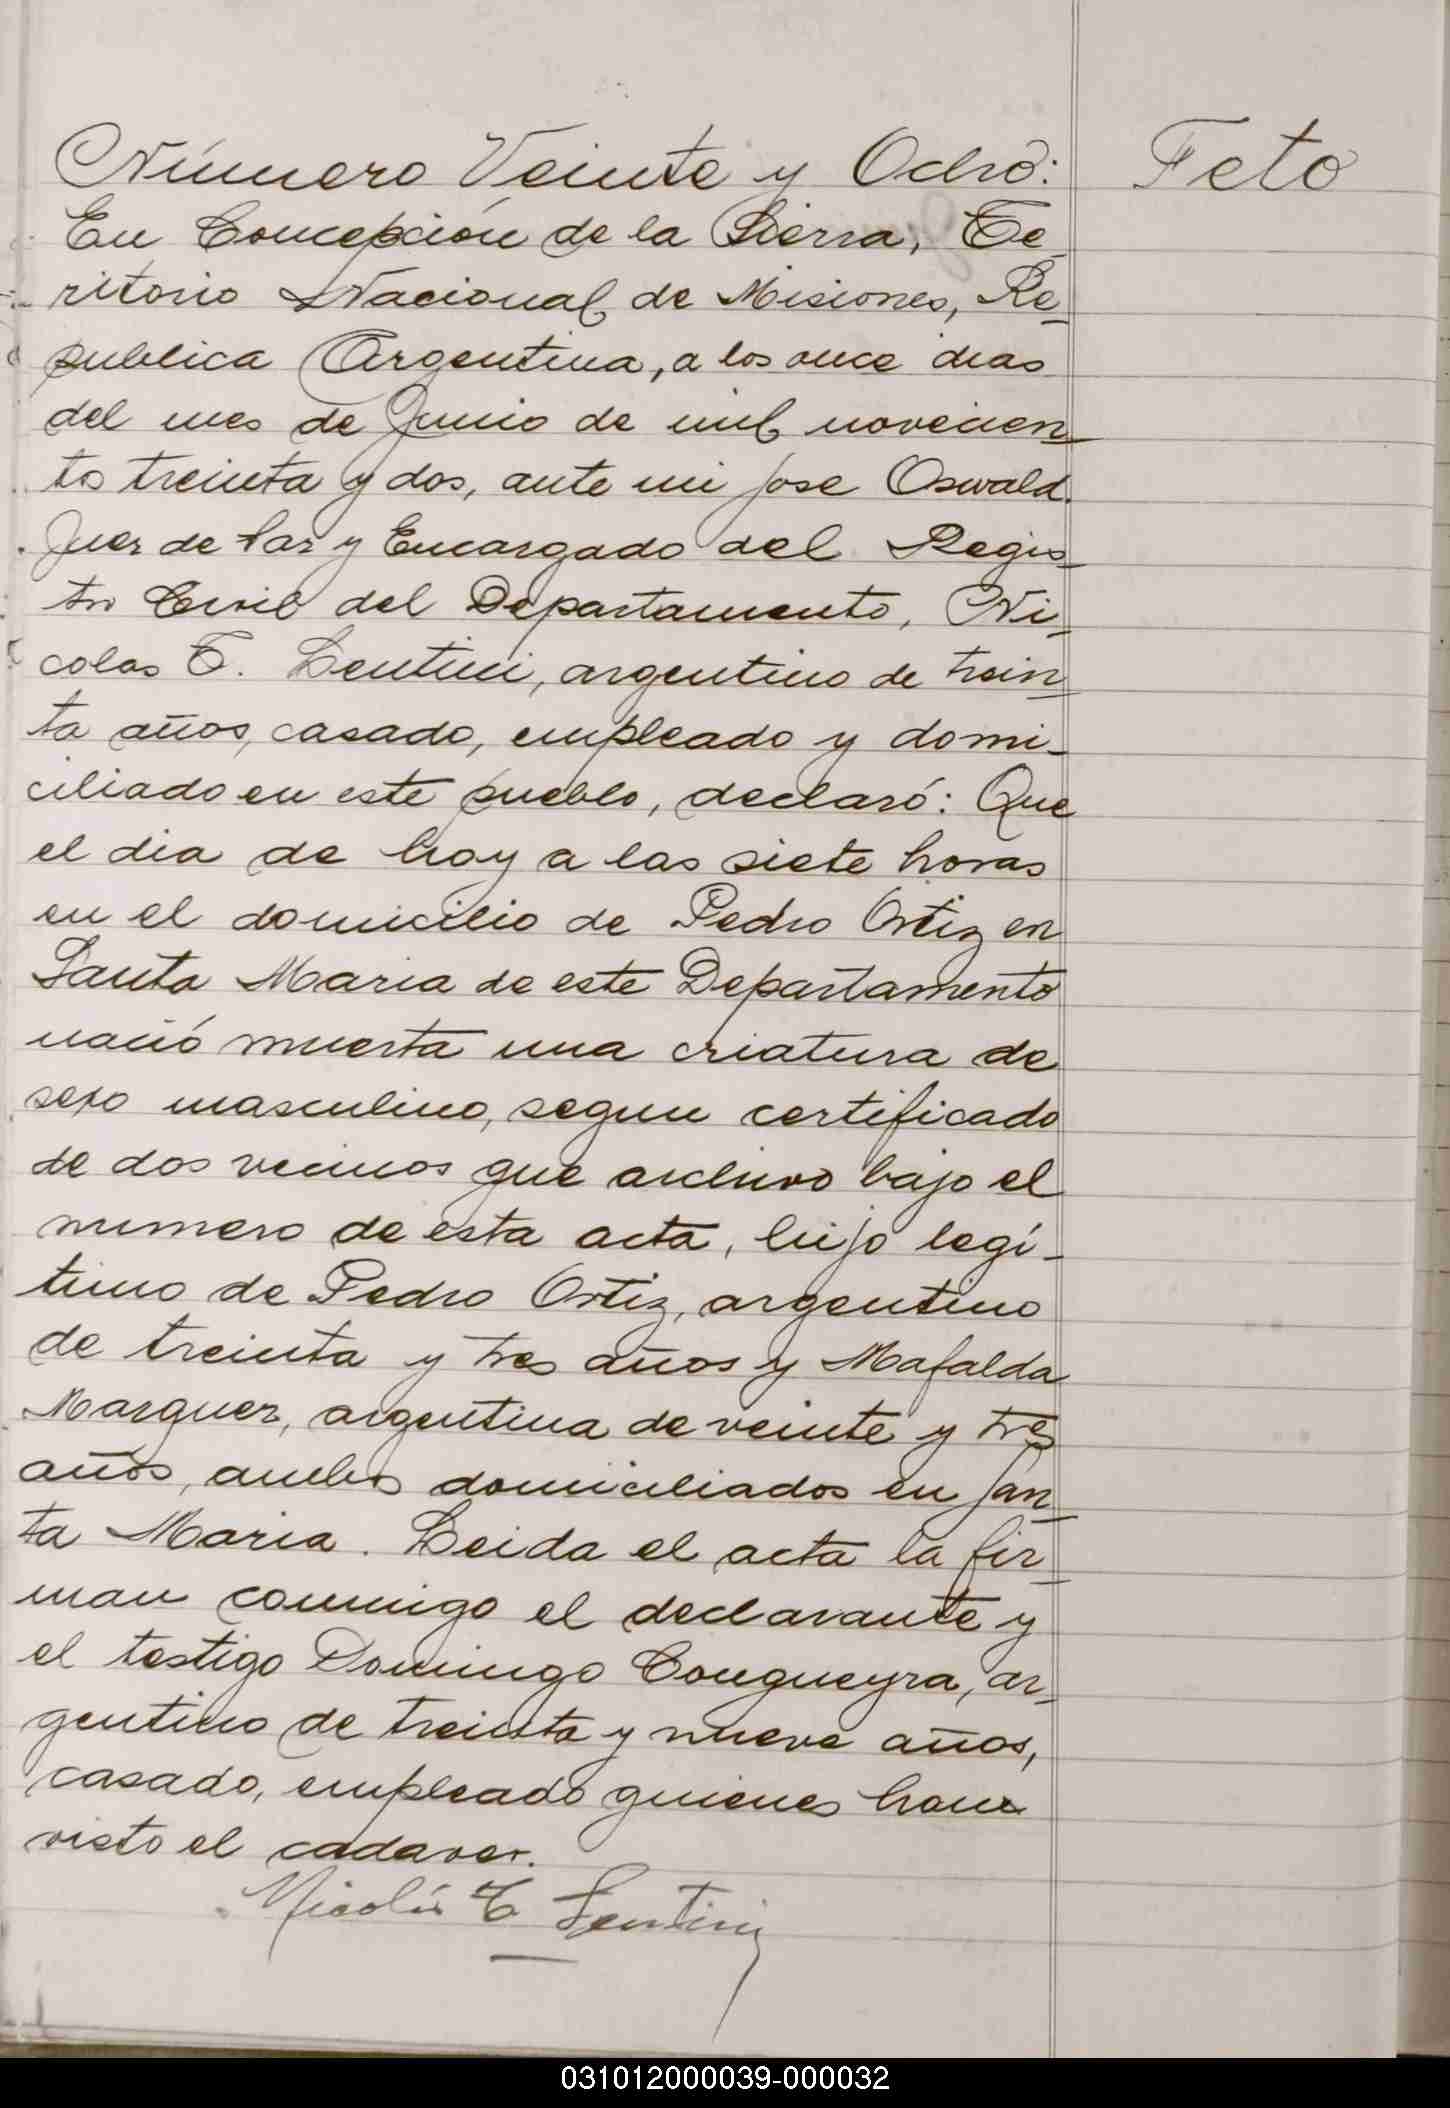 Número Veinte y Ocho:
Feto
En Concepción de la Sierra, Te-
ritorio Nacional de Misiones, Re-
publica Argentina, a los once dias
del mes de Junio de mil novecien-
tos treinta y dos, ante mi Jose Oswald
Juez de Paz y Encargado del Regis-
tro Civil del Departamento, Ni-
colas T. Lentini, argentino de trein-
ta años, casado, empleado y domi-
ciliado en este pueblo, declaró: Que
el dia de hoy a las siete horas
en el domicilio de Pedro Ortiz en
Santa Maria de este Departamento
nació muerta una criatura de
sexo masculino, segun certificado
de dos vecinos que archivo bajo el
numero de esta acta, hijo legi-
timo de Pedro Ortiz, argentino
de treinta y tres años y Mafalda
Marquez, argentina de veinte y tres
años, ambos domiciliados en San-
ta Maria. Leida el acta la fir-
man conmigo el declarante y
el testigo Domingo Cougueyra, ar-
gentino de treinta y nueve años,
casado, empleado quienes han
visto el cadaver.
Nicolás T Lentini
031012000039-000032